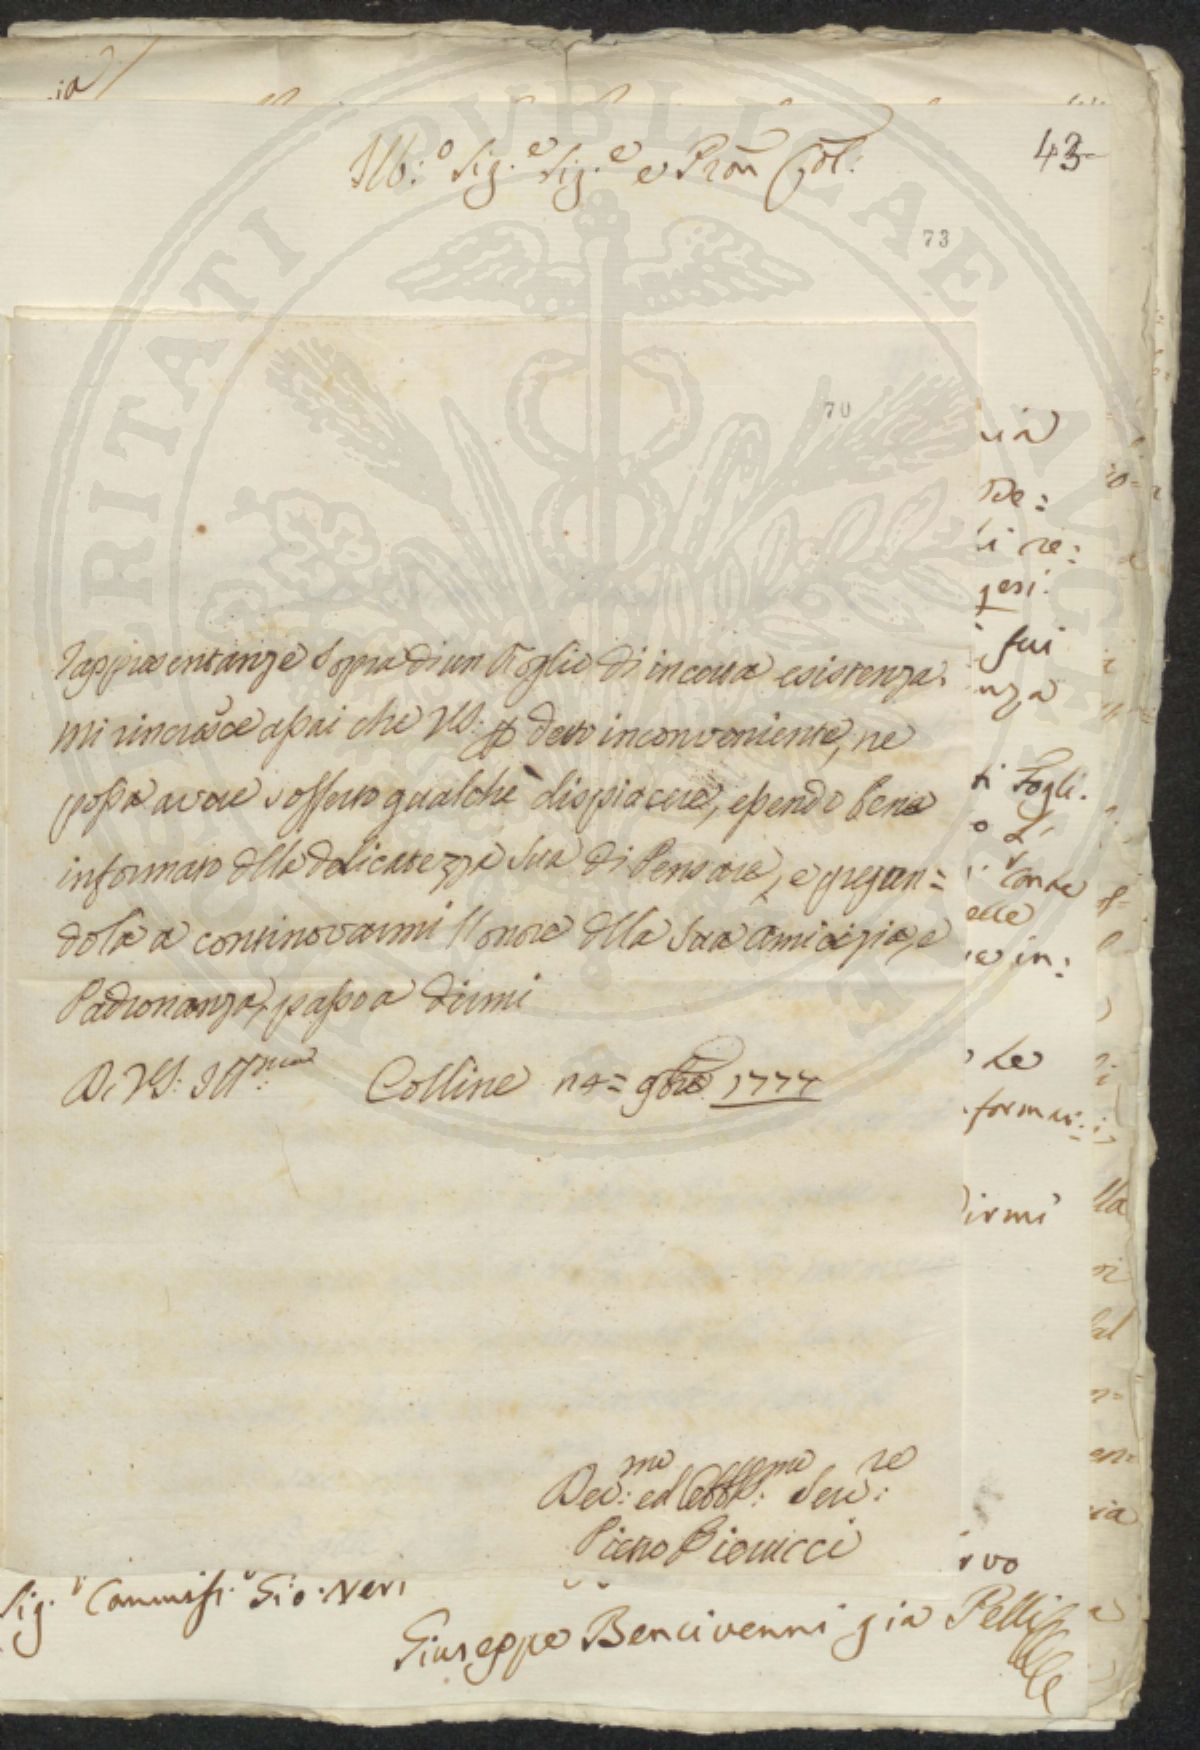 Ill:o Sig.e Sig.e e Pron Col:
43
73
70
rappresentanze sopra di un Foglio di incerta esistenza.
Mi rincresce assai che VS: p detto inconveniente, ne
possa avere sofferto qualche dispiacere, essendo bene
informato della delicatezza sua di Pensare, e pregan=
dola a continovarmi l'onore della sua amicizia, e
Padronanza, passo a dirmi
Di VS: Illma Colline n 4= 9bre 1777
Dev:mo ed Obbl:mo Serv:re
Piero Pierucci
Sig.r Commiss.o Gio: Neri
Giuseppe Bencivenni gia Pelli
via
De:
di re:
gesi.
fui
nza
ti Fogli.
o L'
Conte
elle
e in:
Le
forma:
dirmi
rvo